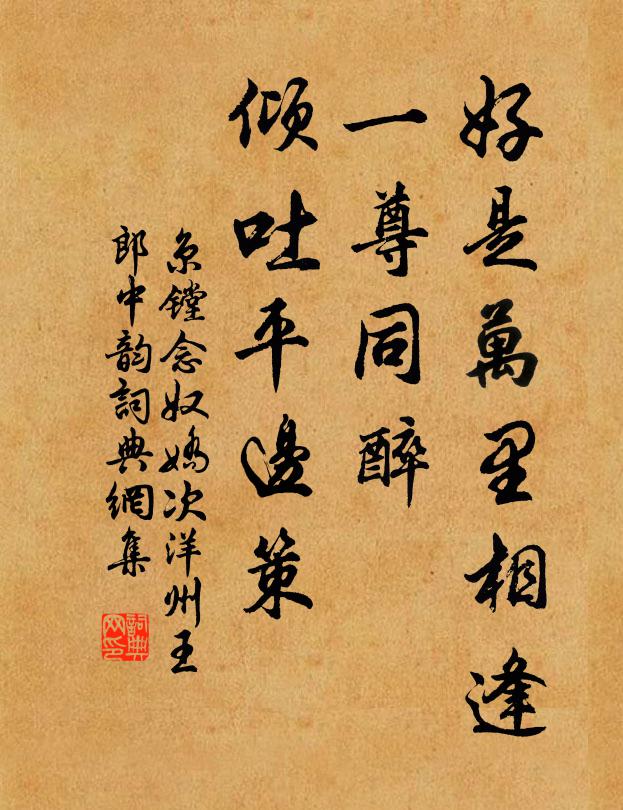 好是萬里相逢
一尊同醉
傾吐平邊策
京鏜念奴嬌次洋州王
郎中韵詞典網集
詞典
网印